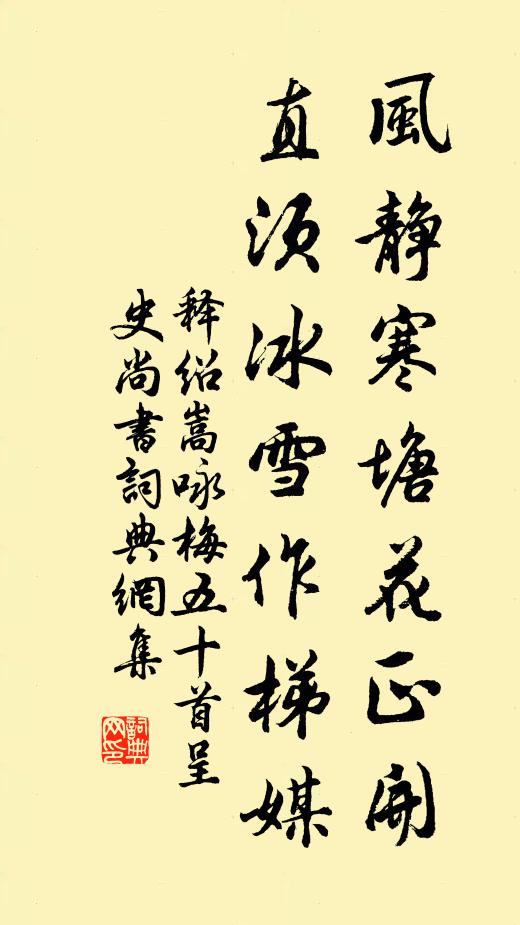 風靜寒塘花正開
直須冰雪作梯媒
釋紹嵩咏梅五十首呈
史尚書詞典網集
詞典
网印